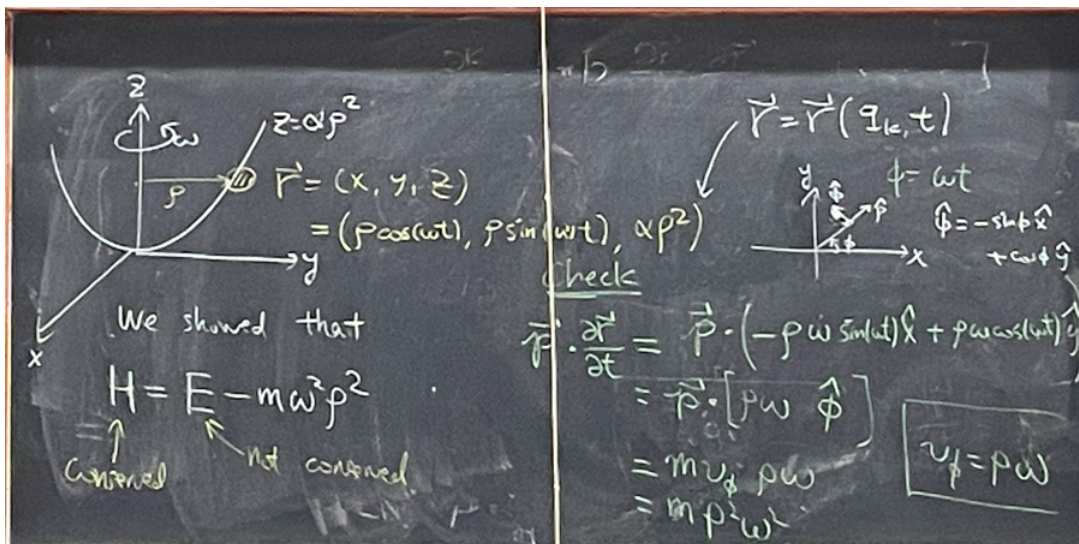 z
ω
z=αρ²
ρ
r⃗ = (x, y, z)
= (ρcos(ωt), ρsin(ωt), αρ²)
y
x
We showed that
H = E − mω²ρ²
conserved
not conserved
r⃗ = r⃗(q_k, t)
φ = ωt
y
φ̂
ρ̂
φ
x
φ̂ = −sinφ x̂
+ cosφ ŷ
Check
p⃗ · ∂r⃗/∂t = p⃗ · (−ρω sin(ωt) x̂ + ρω cos(ωt) ŷ
= p⃗ · [ρω φ̂]
= m v_φ ρω
= mρ²ω²
v_φ = ρω